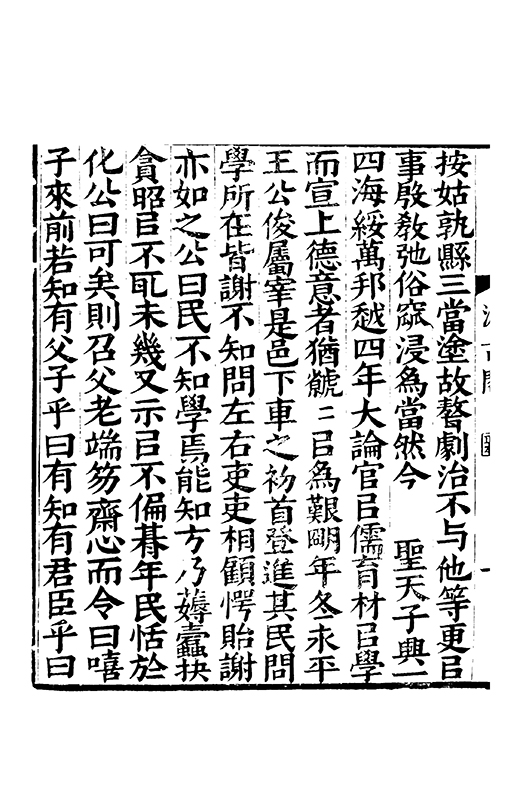 按姑孰縣三當塗故嗸劇治不与他等更㠯
事殷敎弛俗窳浸為當然今　聖天子興一
四海綏萬邦越四年大論官㠯儒育材㠯學
而宣上德意者猶虩〻㠯為艱眀年冬永平
王公俊屬宰是邑下車之初首登進其民問
學所在皆謝不知問左右吏吏相顧愕眙謝
亦如之公曰民不知學焉能知方乃薅蠹抉
貪昭㠯不耴未幾又示㠯不偏朞年民恬於
化公曰可矣則召父老端笏齋心而令曰嘻
子來前若知有父子乎曰有知有君臣乎曰